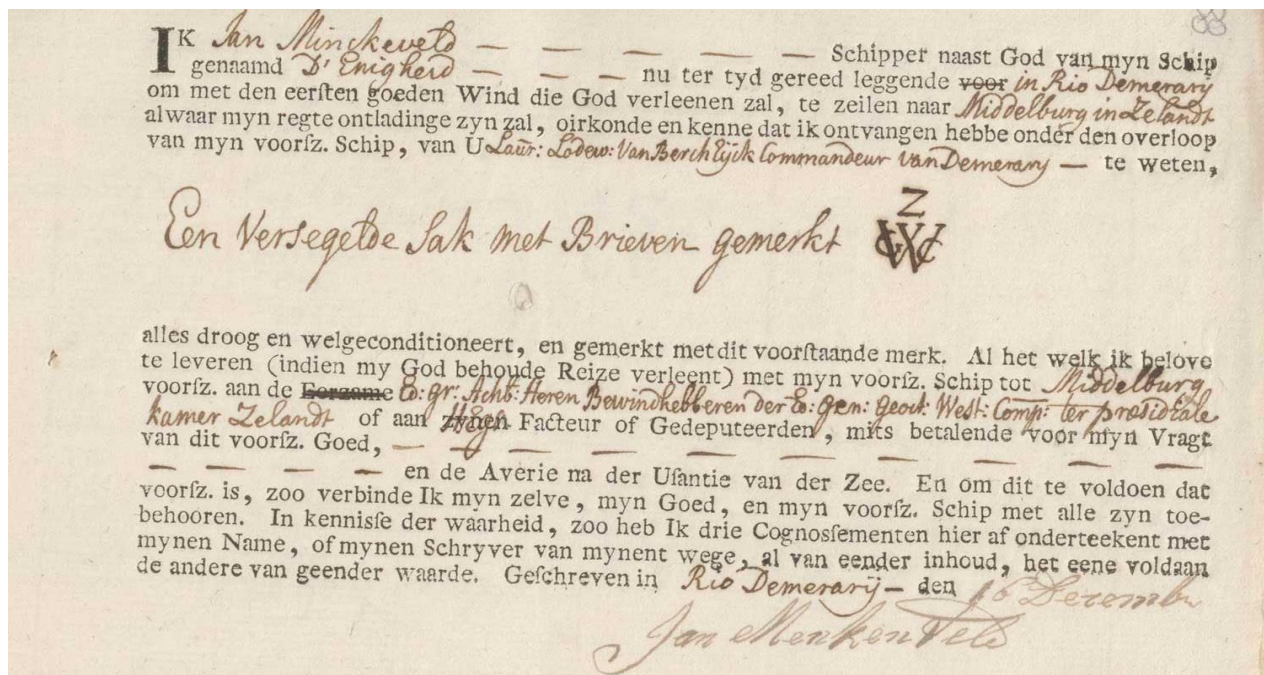 88
IK Jan Minckeveld — — — — — Schipper naast God van myn Schip
genaamd D' Enigheid — — — nu ter tyd gereed leggende voor in Rio Demerary
om met den eerſten goeden Wind die God verleenen zal, te zeilen naar Middelburg in Zelandt
alwaar myn regte ontladinge zyn zal, oirkonde en kenne dat ik ontvangen hebbe onder den overloop
van myn voorſz. Schip, van U Laur: Lodew: Van Berch Eijck Commandeur van Demerary — te weten,
Een Versegelde Sak met Brieven gemerkt
Z
GWC
alles droog en welgeconditioneert, en gemerkt met dit voorſtaande merk. Al het welk ik belove
te leveren (indien my God behoude Reize verleent) met myn voorſz. Schip tot Middelburg
voorſz. aan de Eerzame Ed: gr: Achtb: Heren Bewindhebberen der Ed: Gen: Geoct: West: Comp: ter præsidiale
kamer Zelandt of aan zynen Facteur of Gedeputeerden, mits betalende voor myn Vragt
van dit voorſz. Goed, — — — — — — — — — —
— — — — en de Averie na der Uſantie van der Zee. En om dit te voldoen dat
voorſz. is, zoo verbinde Ik myn zelve, myn Goed, en myn voorſz. Schip met alle zyn toe-
behooren. In kenniſſe der waarheid, zoo heb Ik drie Cognoſſementen hier af onderteekent met
mynen Name, of mynen Schryver van mynent wege, al van eender inhoud, het eene voldaan
de andere van geender waarde. Geſchreven in Rio Demerarij — den 16 Decemb
Jan Menkenveld